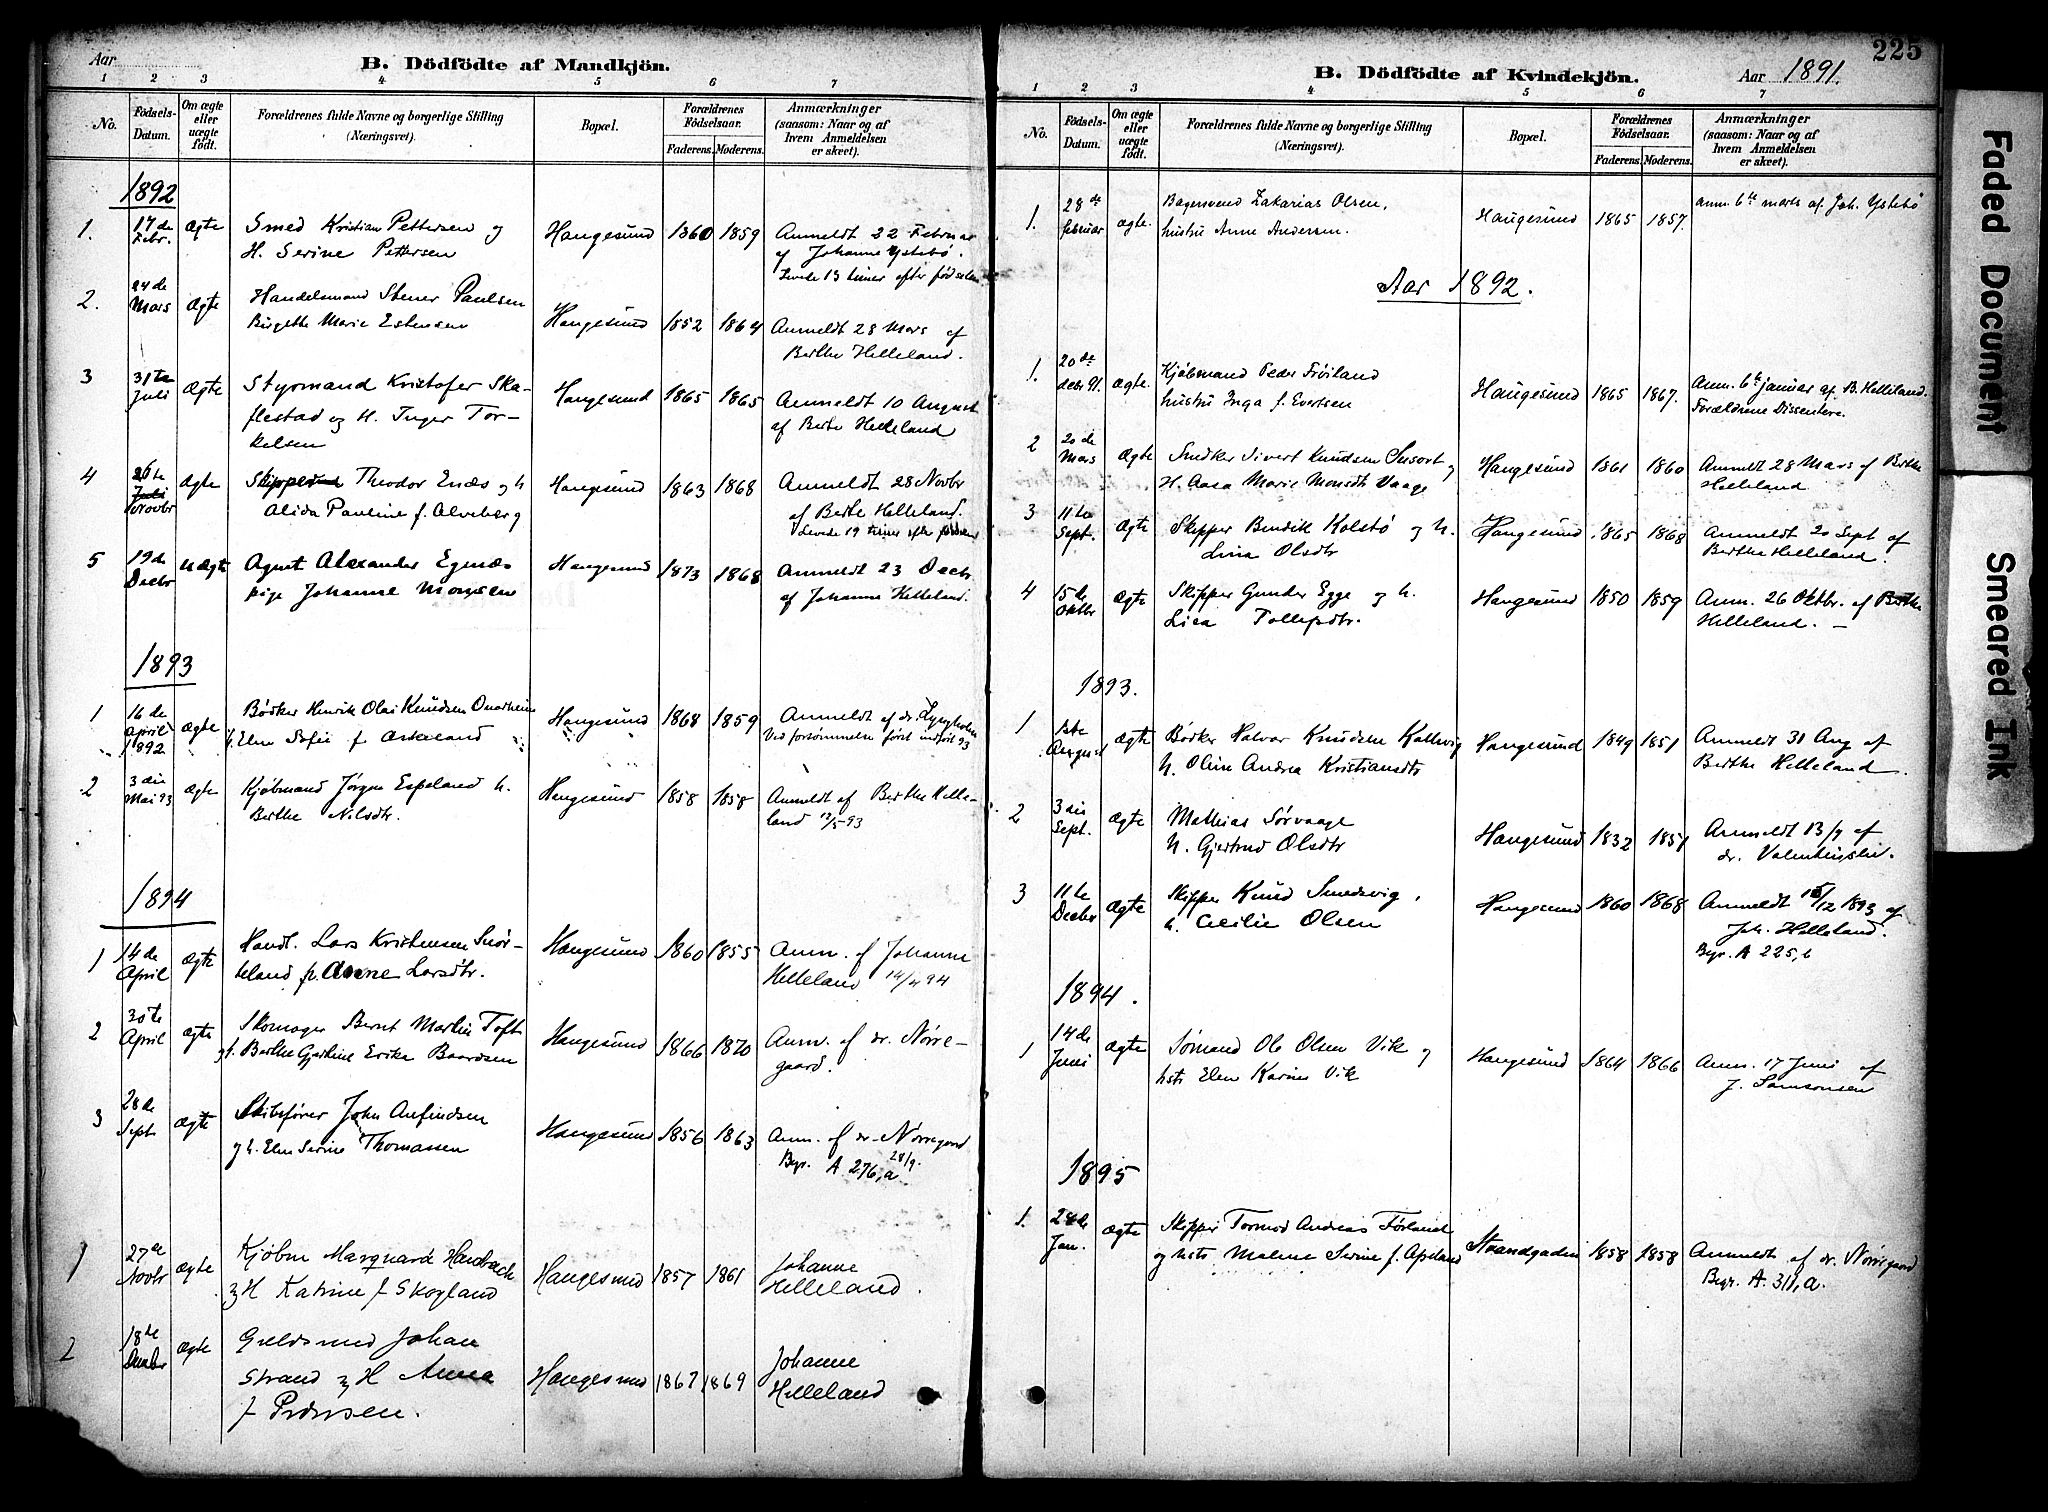 Aar
B. Dödfödte af Mandkjön.
1 2 3 4 5 6 7
No.
Födsels-Datum.
Om ægte eller uægte födt.
Forældrenes fulde Navne og borgerlige Stilling (Næringsvei).
Bopæl.
Forældrenes Födselsaar.
Faderens. Moderens.
Anmærkninger (saasom: Naar og af hvem Anmeldelsen er skeet).
1892
1. 17de Febr. ægte Smed Kristian Pettersen og Haugesund 1860 1859 Anmeldt 22 Februar
H. Serine Pettersen af Johanne Ystebö.
Levede 13 timer efter födselen
2. 24de Mars ægte Handelsmand Stener Paulsen
Birgethe Marie Estensen Haugesund 1852 1864 Anmeldt 28 Mars af
Berthe Helleland.
3 31te Juli ægte Styrmand Kristofer Ska- Haugesund 1865 1865 Anmeldt 10 August
flestad og H. Inger Tor- af Berte Helleland
kelsen
4 26te Juli Novbr ægte Skipper Theodor Enæs og h Haugesund 1863 1868 Anmeldt 28 Novbr
Alida Pauline f. Alveberg af Berte Helleland.
Levede 19 timer efter födselen
5 19de Decbr uægte Agent Alexander Egenæs Haugesund 1873 1868 Anmeldt 23 Decbr.
pige Johanne Monsen af Johanne Helleland.
1893
1 16de April 1892 ægte Bödker Henrik Olai Knudsen Onarheim Haugesund 1868 1859 Anmeldt af dr.
h. Elen Sofie f. Askeland Ved forsömmelse först indfört 93
2 3die Mai 93 ægte Kjöbmand Jörgen Espeland h. Haugesund 1858 1858 Anmeldt af Berthe Helle-
Berthe Nilsdtr. land 12/5 93
1894
1 14de April ægte Handl. Lars Kristensen Snör- Haugesund 1860 1855 Anm. af Johanne
teland h. Anne Larsdtr. Helleland 14/4 94
2 30te April ægte Skomager Bernt Martin Toft Haugesund 1866 1870 Anm. af dr. Nörre-
og h. Berthe Gjertine Erika Baardsen gaard.
3 28de Sept. ægte Skibsförer John Anfindsen
og h. Elen Serine Thomassen Haugesund 1856 1863 Anm. af dr. Nörregaard
28/9.
Begr. A 276,a
1 27de Novbr ægte Kjöbm Marquard Handrach Haugesund 1857 1861 Johanne
og H Katrine f Skogland Helleland.
2 18de Decbr ægte Guldsmed Johan
Strand og H Anna Haugesund 1867 1869 Johanne
f Pedersen. Helleland
225
B. Dödfödte af Kvindekjön.
Aar 1891.
1 2 3 4 5 6 7
No.
Födsels-Datum.
Om ægte eller uægte födt.
Forældrenes fulde Navne og borgerlige Stilling (Næringsvei).
Bopæl.
Forældrenes Födselsaar.
Faderens. Moderens.
Anmærkninger (saasom: Naar og af hvem Anmeldelsen er skeet).
1. 28de februar ægte. Bagersvend Zakarias Olsen, Haugesund 1865 1857. anm. 6te marts af Joh. Ystebö
hustru Anne Andersen.
Aar 1892.
1. 20de decbr 91. ægte. Kjöbmand Peder Fröiland Haugesund 1865 1867. Anm. 6te januar af B. Helleland.
hustru Inga f. Evertsen Forældrene Dissentere.
2 20de Mars ægte Snedker Sivert Knudsen Susort og Haugesund 1861 1860 Anmeldt 28 Mars af Berthe
H. Aasa Marie Monsdtr Vaage Helleland
3 11te Sept. ægte Skipper Bendik Kolstö og h. Haugesund 1865 1868 Anmeldt 20 Sept af
Lina Olsdtr Berthe Helleland.
4 15de Oktbr ægte Skipper Gunder Egge og h. Haugesund 1850 1859 Anm. 26 Oktbr. af Berthe
Lisa Tollefsdtr. Helleland. —
1893.
1 1ste August ægte Bödker Halvor Knudsen Kallevig Haugesund 1849 1851 Anmeldt 31 Aug af
h. Oline Andrea Kristiansdtr Berthe Helleland.
2 3die Sept. ægte Mathias Sörvaage Haugesund 1832 1851 Anmeldt 13/9 af
h. Gjertrud Olsdtr dr.
3 11te Decbr ægte Skipper Knud Smedsvig, Haugesund 1860 1868 Anmeldt 15/12 1893 af
h. Cecilie Olsen Joh. Helleland.
Begr. A 225,b
1894.
1 14de Juni ægte Sömand Ole Olsen Vik og Haugesund 1864 1866 Anm. 17 Juni af
hstr Elen Karine Vik J. Samsonsen
1895
1. 24de Jan. ægte Skipper Tormod Andreas Förland Strandgaden 1858 1858 Anmeldt af dr. Nörregaard
og hstr Malene Serine f. Apeland Begr. A. 311,a.
Faded Document
Smeared Ink